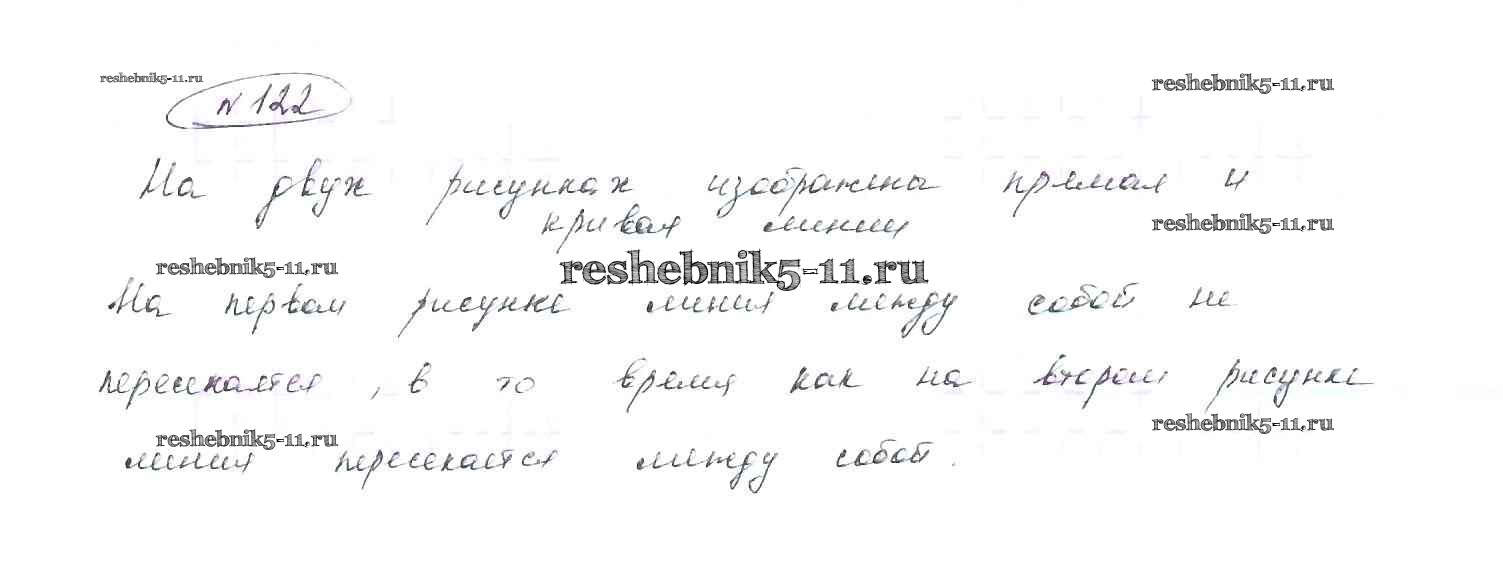 reshebnik5-11.ru
reshebnik5-11.ru
№ 122
На двух рисунках изображены прямая и
кривая линии
reshebnik5-11.ru
reshebnik5-11.ru
reshebnik5-11.ru
На первом рисунке линия между собой не
пересекается, в то время как на втором рисунке
reshebnik5-11.ru
reshebnik5-11.ru
линия пересекается между собой.